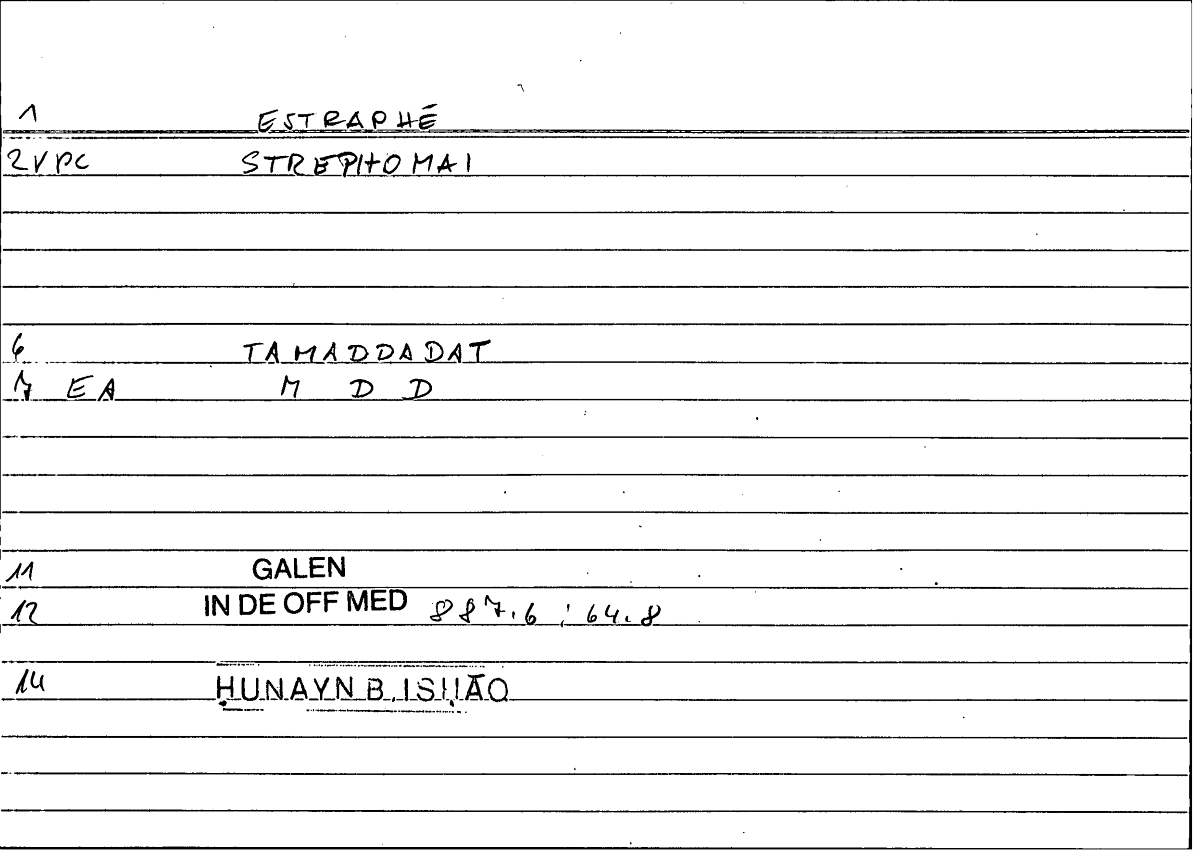 1 ESTRAPHĒ
2VPC STREPHOMAI
6 TAMADDADAT
7 EA M D D
11 GALEN
12 IN DE OFF MED 887.6 ; 64.8
14 ḤUNAYN B. ISḤĀQ